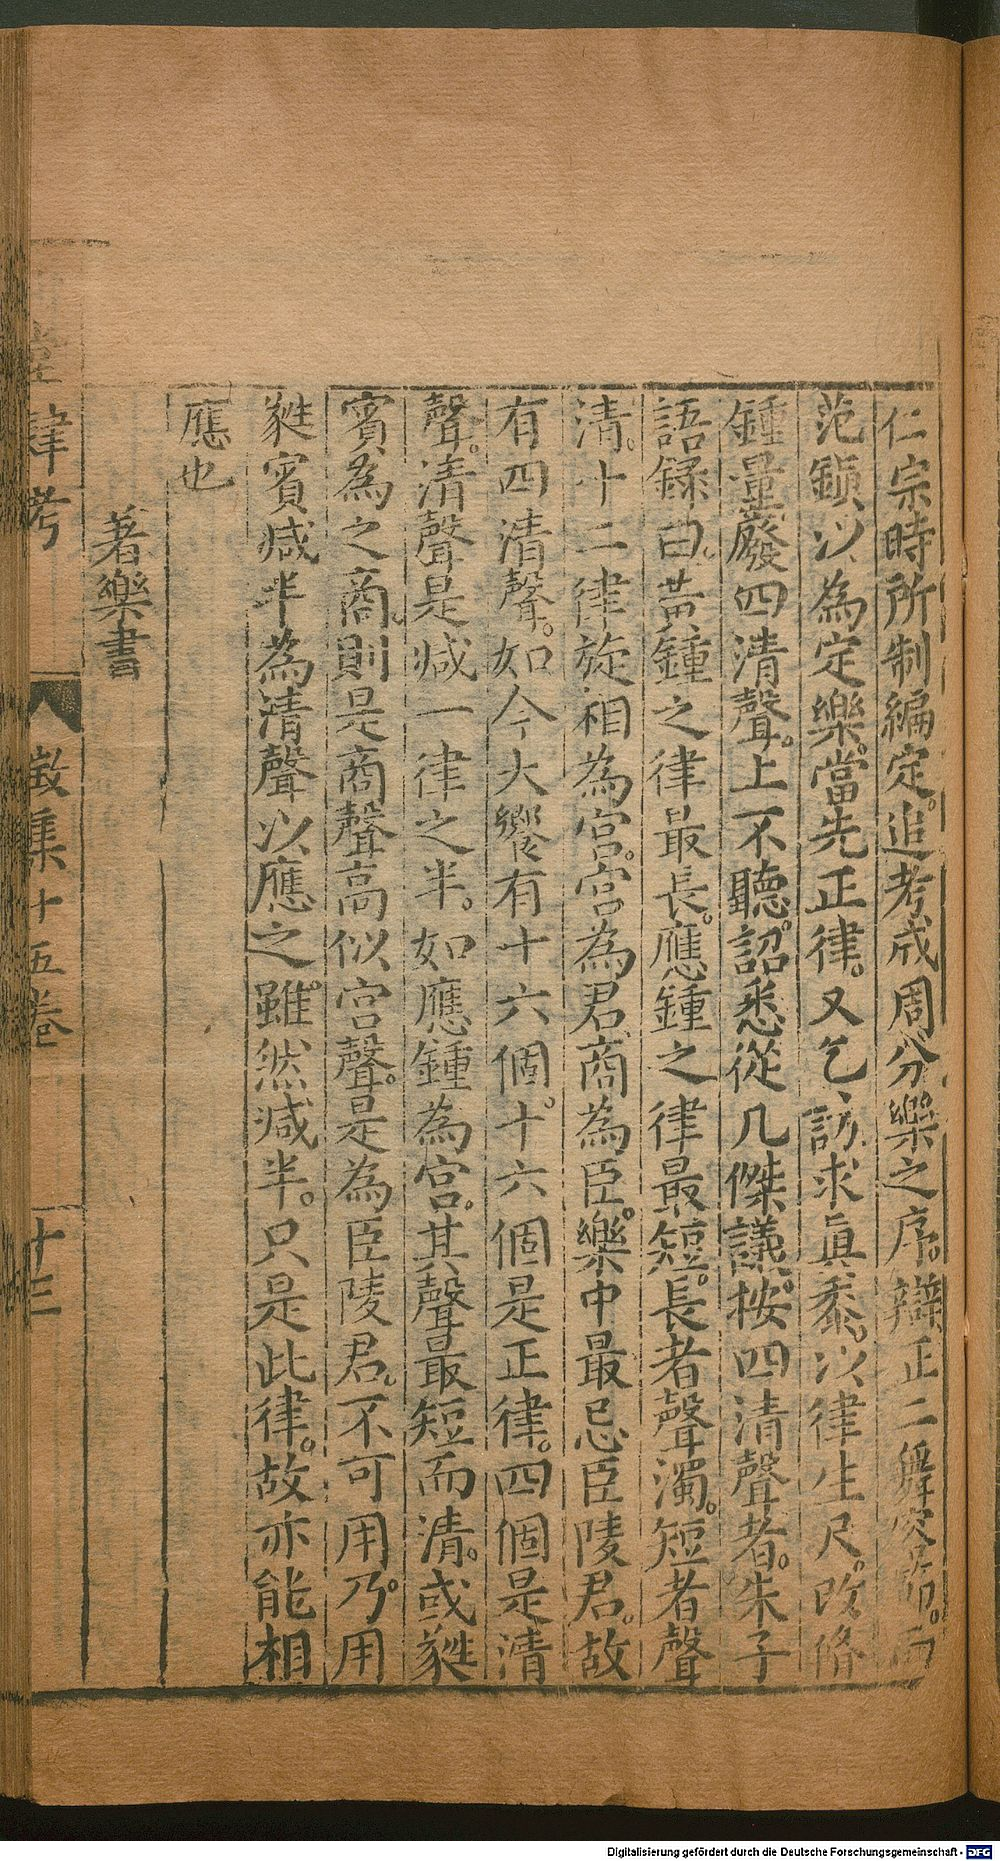 仁宗時所制編定。追考成周分樂之序。辯正二舞容節。而
范鎮以為定樂。當先正律。又乞訪求真黍。以律生尺。改脩
鍾量。廢四清聲。上不聽。詔悉從几傑議。按四清聲者。朱子
語録曰。黃鍾之律最長。應鍾之律最短。長者聲濁。短者聲
清。十二律旋相為宮。宮為君。商為臣。樂中最忌臣陵君。故
有四清聲。如今大響有十六個。十六個是正律。四個是清
聲。清聲是減一律之半。如應鍾為宮。其聲最短而清。或蕤
賓為之商。則是商聲高似宮聲。是為臣陵君。不可用。乃用
蕤賓減半為清聲以應之。雖然減半。只是此律。故亦能相
應也
著樂書
律考
徵集十五卷
十三
Digitalisierung gefördert durch die Deutsche Forschungsgemeinschaft - DFG